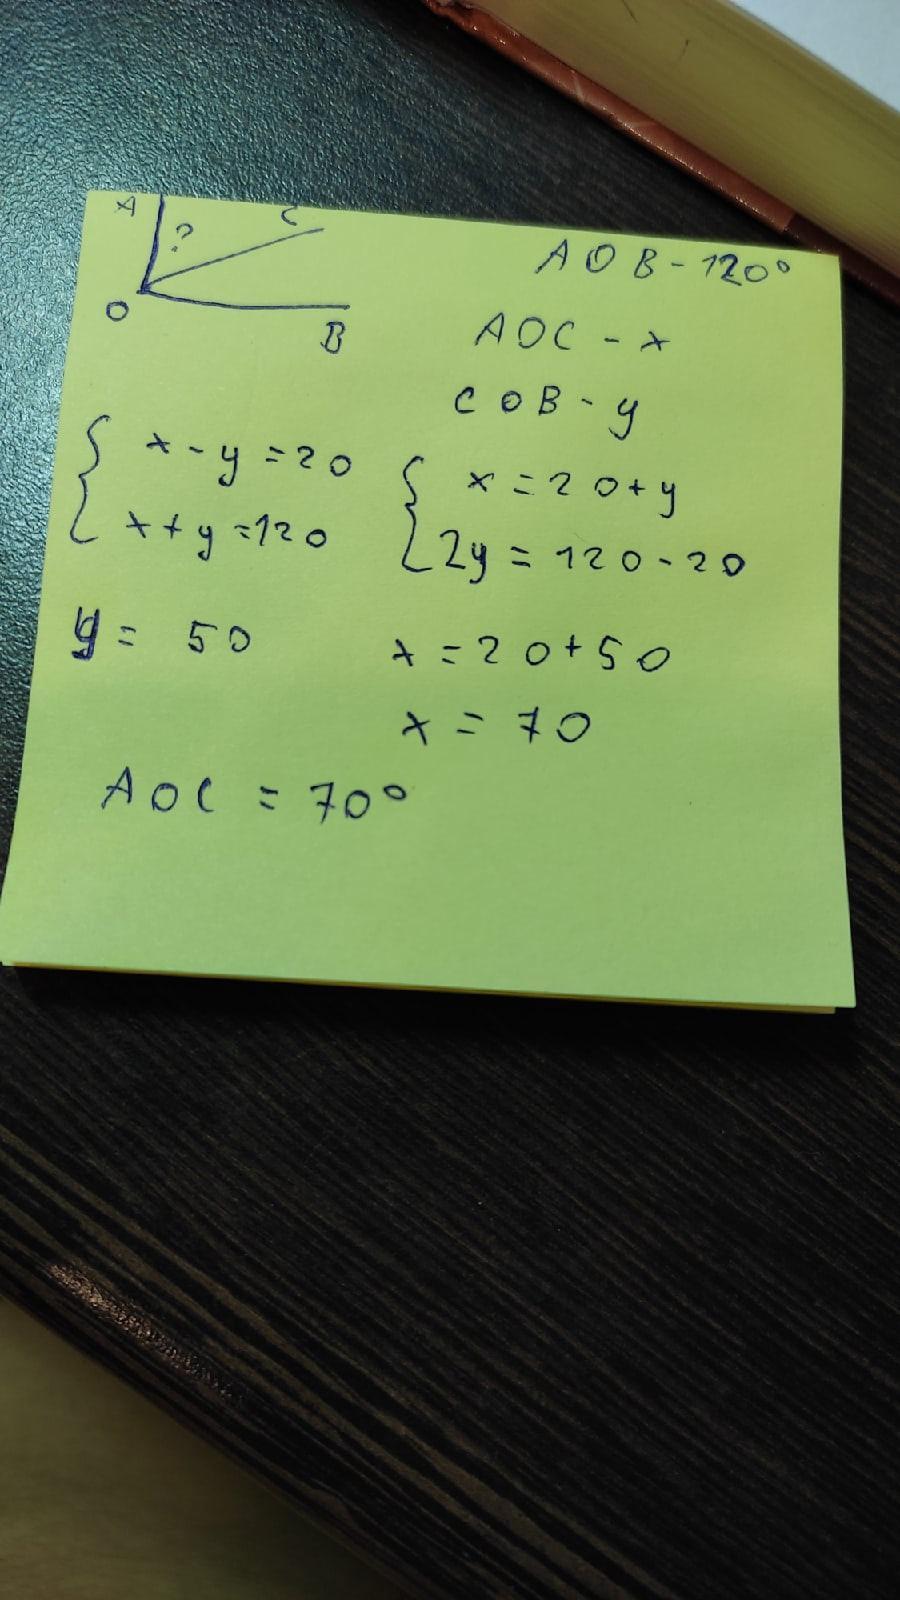 A
C
?
O
B
AOB - 120°
AOC - x
COB - y
{ x - y = 20
x + y = 120
{ x = 20 + y
2y = 120 - 20
y = 50
x = 20 + 50
x = 70
AOC = 70°